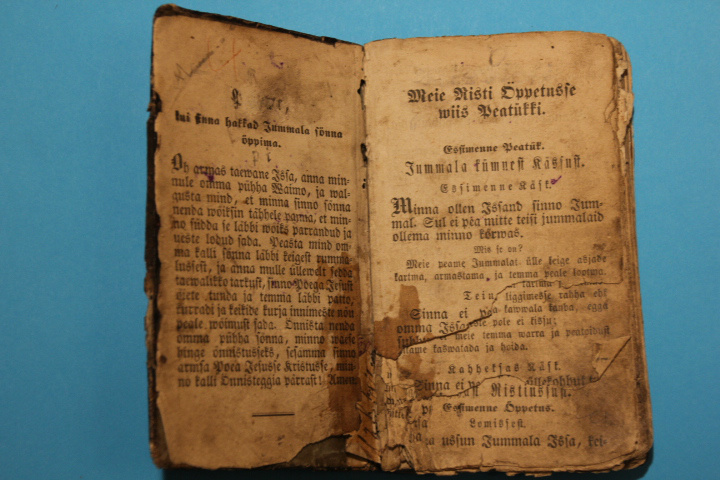 kui sinna hakkad Jummala sönna
öppima.
Oh armas taewane Issa, anna min-
nule omma pühha Waimo, ja wal-
gusta mind, et minna sinno sönna
nenda wöiksin tähhele panna, et min-
no südda se läbbi wöiks parrandud ja
ueste lodud sada. Peasta mind om-
ma kalli sönna läbbi keigest rumma-
lussest, ja anna mulle üllewelt sedda
taewalikko tarkust, sinno Poega Jesust
öiete tunda ja temma läbbi patto,
kurradi ja keikide kurja innimeste nöu
peale woimust sada. Önnista nenda
omma pühha sönna, minno waese
hinge önnistusseks, sesamma sinno
armsa Poea Jesusse Kristusse, min-
no kalli Önnisteggia pärrast! Amen
Meie Risti Öppetusse
wiis Peatükki.
Essimenne Peatük.
Jummala kümnest Kässust.
Essimenne Käsk.
Minna ollen Issand sinno Jum-
mal. Sul ei pea mitte teisi jummalaid
ollema minno körwas.
Mis se on?
Meie peame Jummalat ülle keige asjade
kartma, armastama ja temma peale lootma.
Tein liggimesse rahha ehk
Sinna ei pea kawwala kauba, egga
omma Issa pole ei kisku;
meie temma warra ja peatoidust
aitame kaswatada ja hoida.
Kahheksas Käsk.
Sinna ei
Ristiussust.
Essimenne Öppetus.
Lomissest.
ussun Jummala Issa, kei-